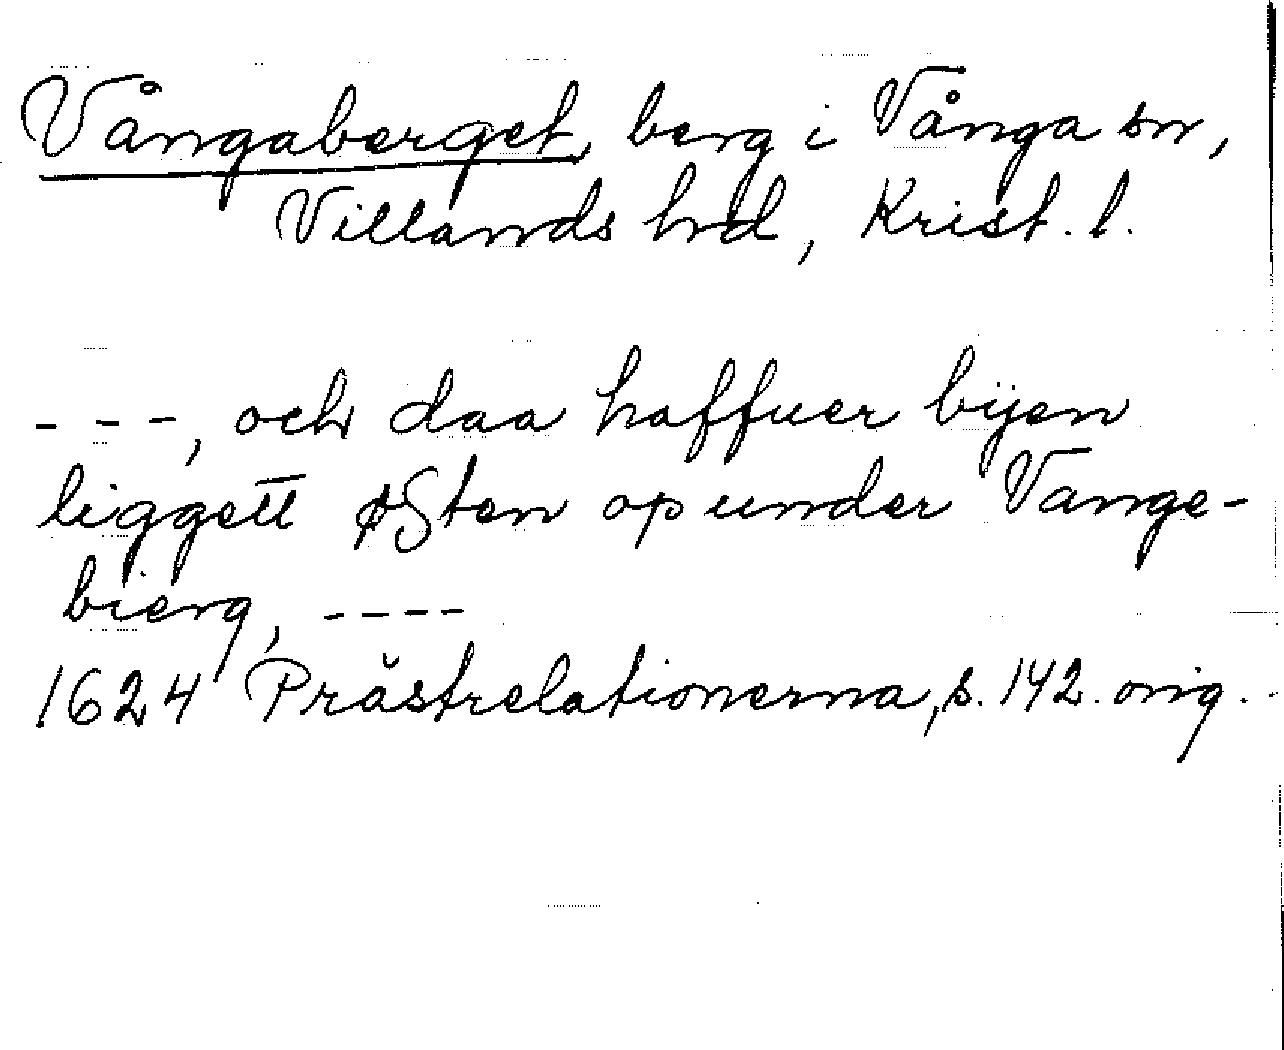 Vångaberget, berg i Vånga sn,
Villands hrd, Krist. l.
- - -, och daa haffuer bÿen
liggett øSten op under Vange-
bierg, - - - -
1624 Prästrelationerna, s. 142. orig.